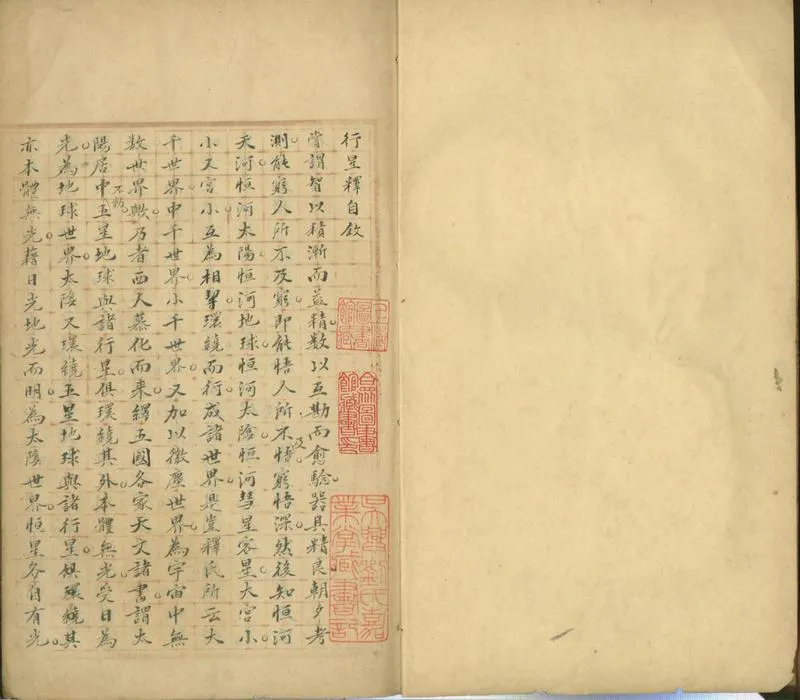 行星釋自敘
嘗謂智以積漸而益精數以互勘而愈驗器具精良朝夕考
測能窮人所不及窮即能悟人所不及悟窮悟深然後知恒河
天河恒河太陽恒河地球恒河太陰恒河彗星客星大宮小
小又宮小互為相挈環繞而行成諸世界是豈釋氏所云大
千世界中千世界小千世界又加以微塵世界為宇宙中無
數世界歟乃者西人慕化而来繹五國各家天文諸書謂太
陽居中不動五星地球與諸行星俱環繞其外本體無光受日為
光為地球世界太陰又環繞五星地球與諸行星俱環繞其
亦本體無光藉日光地光而明為太陰世界恒星各自有光
上海圖書館藏
吳興劉氏嘉業堂藏書記